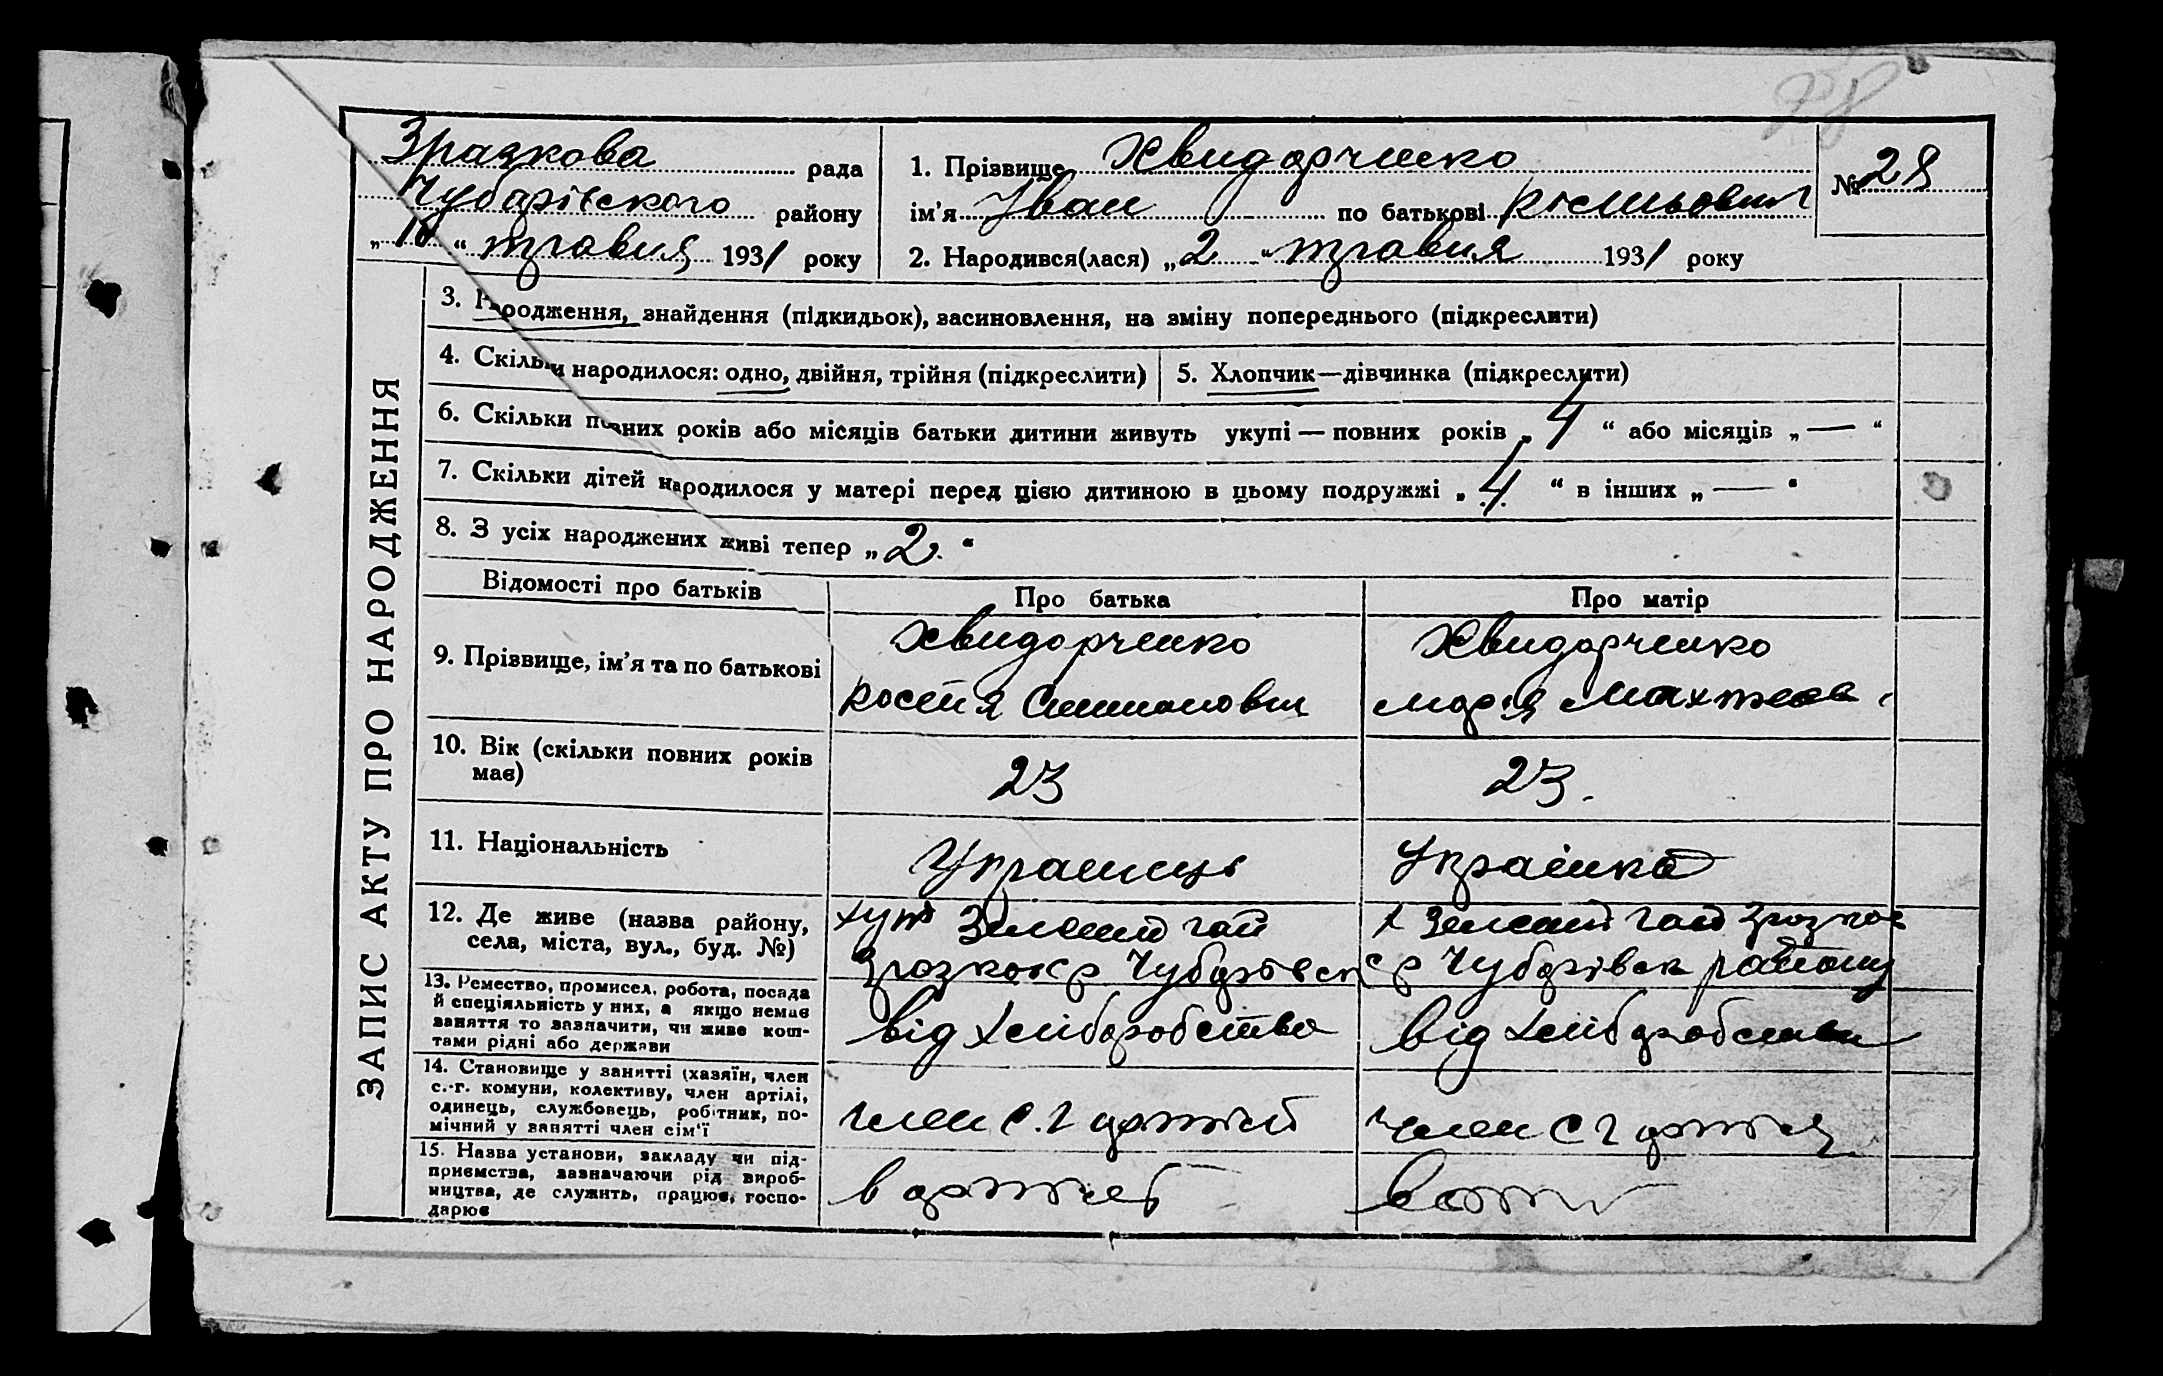 28
Зразкова рада
Чубарівського району
„18“ травня 1931 року
1. Прізвище Хвидорченко
ім’я Іван по батькові
2. Народився(лася) „2“ травня 1931 року
№ 28
ЗАПИС АКТУ ПРО НАРОДЖЕННЯ
3. Народження, знайдення (підкидьок), засиновлення, на зміну попереднього (підкреслити)
4. Скільки народилося: одно, двійня, трійня (підкреслити)
5. Хлопчик—дівчинка (підкреслити)
6. Скільки повних років або місяців батьки дитини живуть укупі — повних років „4“ або місяців „—“
7. Скільки дітей народилося у матері перед цією дитиною в цьому подружжі „4“ в інших „—“
8. З усіх народжених живі тепер „2.“
Відомості про батьків
Про батька
Про матір
9. Прізвище, ім’я та по батькові
Хвидорченко
Костя
Хвидорченко
Марія
10. Вік (скільки повних років
має)
23
23.
11. Національність
Українець
Українка
12. Де живе (назва району,
села, міста, вул., буд. №)
хут Зелений гай
Зразков с р Чубарівськ
х Зелений гай Зразков
с р Чубарівськ району
13. Ремество, промисел, робота, посада
й спеціяльність у них, а якщо немає
заняття то зазначити, чи живе кош-
тами рідні або держави
від хліборобства
від хліборобства
14. Становище у занятті (хазяїн, член
с.-г. комуни, колективу, член артілі,
одинець, службовець, робітник, по-
мічний у занятті член сім’ї
член с.г артілі
член с г артілі
15. Назва установи, закладу чи під-
приємства, зазначаючи рід вироб-
ництва, де служить, працює, госпо-
дарює
в артілі